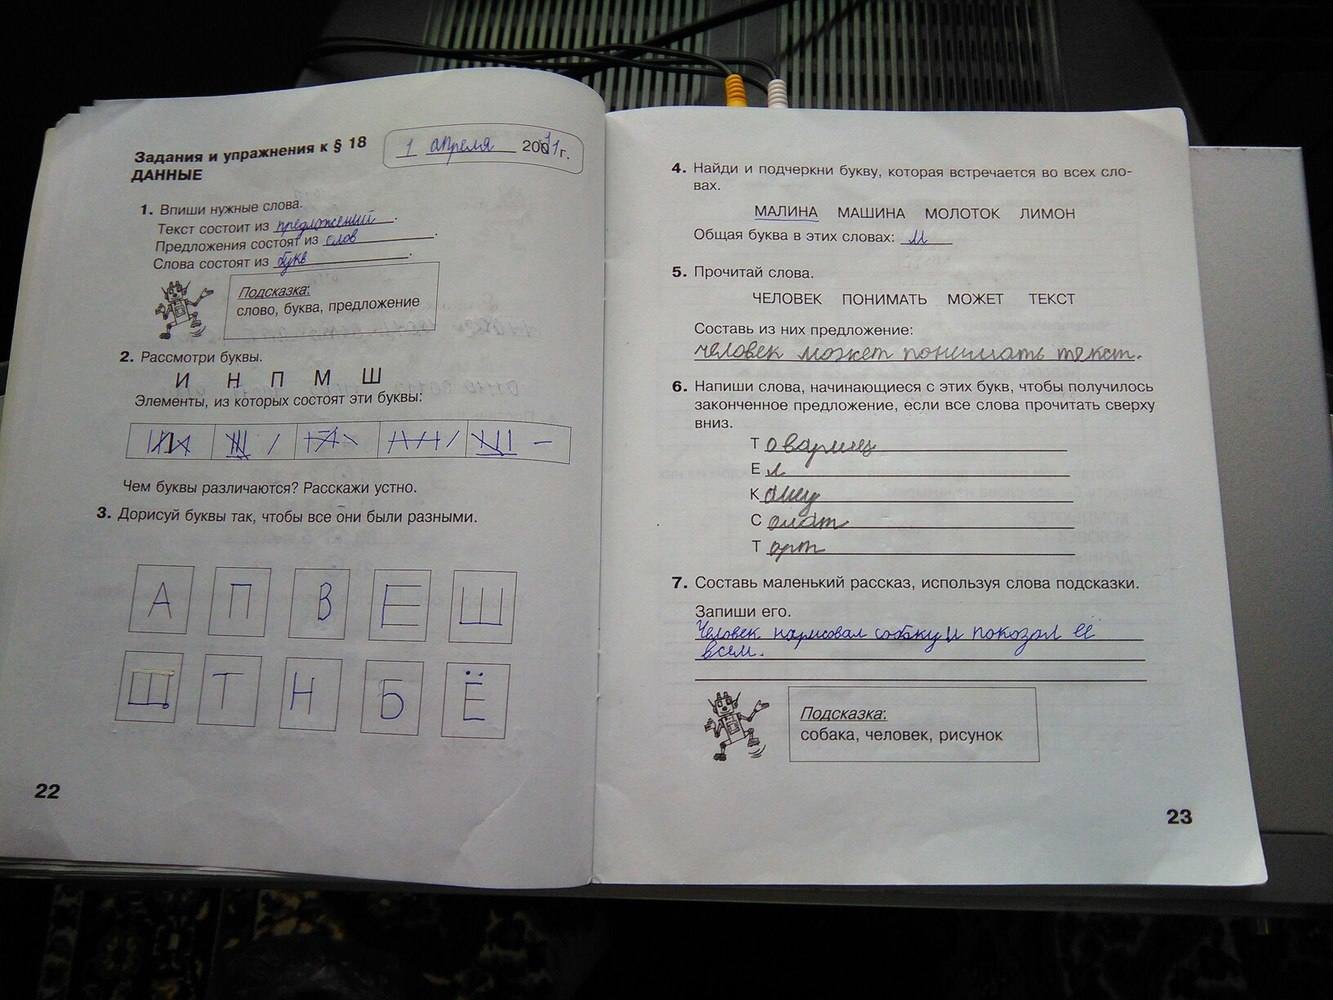 Задания и упражнения к § 18
ДАННЫЕ
1 апреля 2011г.
1. Впиши нужные слова.
Текст состоит из предложений.
Предложения состоят из слов.
Слова состоят из букв.
Подсказка:
слово, буква, предложение
2. Рассмотри буквы.
И Н П М Ш
Элементы, из которых состоят эти буквы:
Чем буквы различаются? Расскажи устно.
3. Дорисуй буквы так, чтобы все они были разными.
А П В Е Ш
Щ Т Н Б Ё
22
4. Найди и подчеркни букву, которая встречается во всех сло-
вах.
МАЛИНА МАШИНА МОЛОТОК ЛИМОН
Общая буква в этих словах: м
5. Прочитай слова.
ЧЕЛОВЕК ПОНИМАТЬ МОЖЕТ ТЕКСТ
Составь из них предложение:
человек может понимать текст.
6. Напиши слова, начинающиеся с этих букв, чтобы получилось
законченное предложение, если все слова прочитать сверху
вниз.
Товарищ
Ел
Кашу
Салат
Торт
7. Составь маленький рассказ, используя слова подсказки.
Запиши его.
Человек нарисовал собаку и показал её
всем.
Подсказка:
собака, человек, рисунок
23